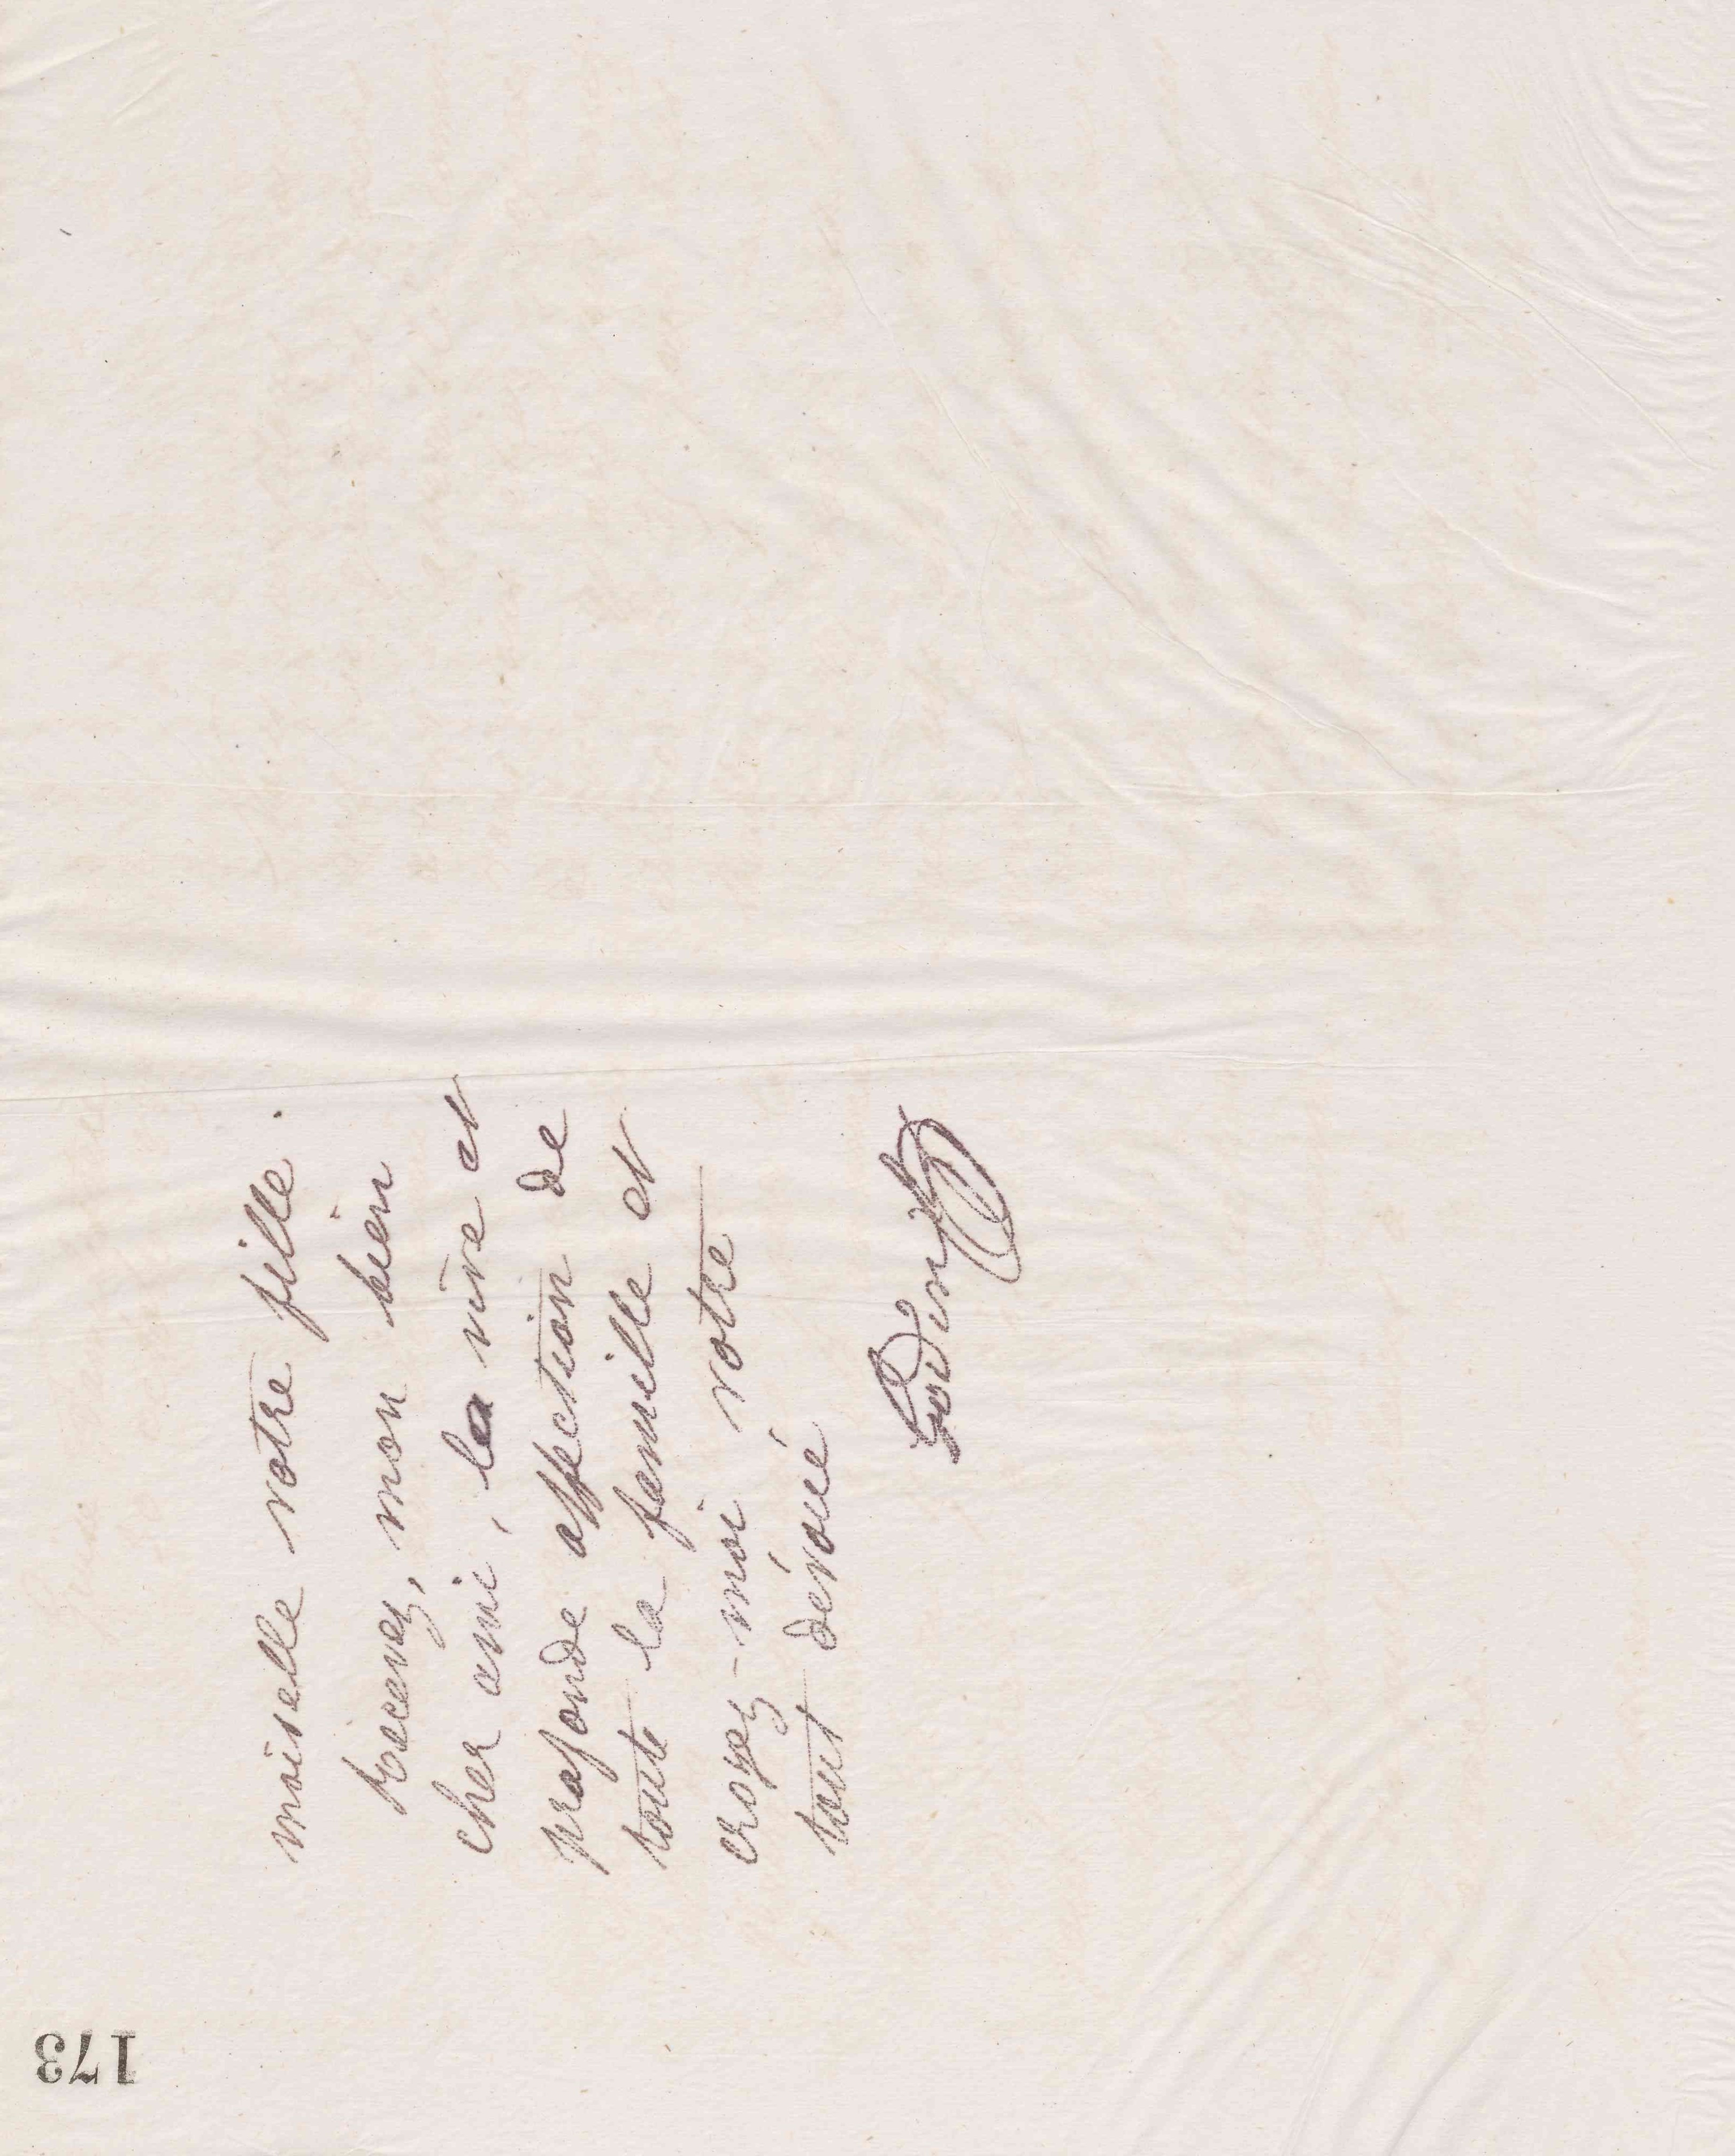 173
moiselle votre fille.
Recevez, mon bien
cher ami, la vive et
profonde affection de
toute la famille et
croyez-moi votre
tout dévoué
Godin